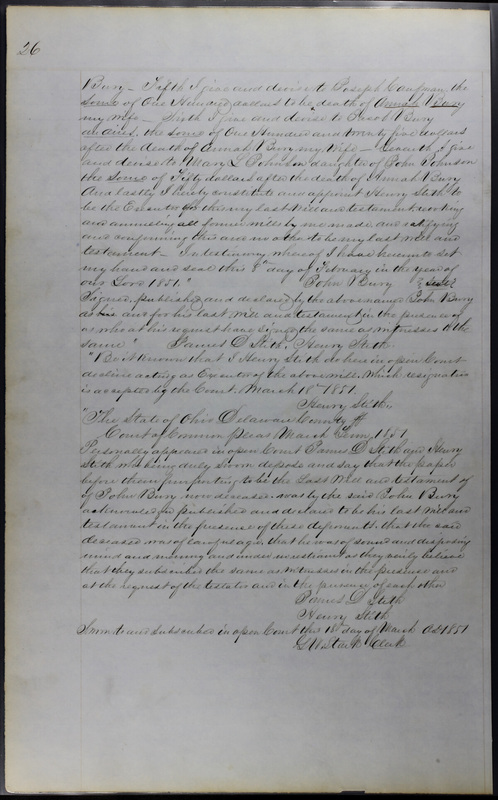 26
Bury – Fifth I give and devise to Joseph Caufman, the
some of One Hundred dollars to the death of Annah Bury
my wife – Sixth I give and devise to Jacob Bury
the some of One Hundred and twenty five dollars
after the death of Annah Bury my Wife – Seventh I give
and devise to Mary L Johnson daughter of John Johnson
the some of Fifty dollars after the death of Annah Bury
And lastly I hereby constitute and appoint Henry Stith to
be the Executor for this my last Will and testament, revoking
and annulling all former wills by me made, and ratifying
and confirming this and no other to be my last will and
testament – In testimony whereof I have hereunto set
my hand and seal this 8th day of February in the year of
our Lord 1851." John Bury Seal
Signed, published and declared by the above named John Bury
as his and for his last will and testament in the presence of
us who at his request have signed the same as witnesses to the
same" James D Stith, Henry Stith
"Be it known that I Henry Stith do here in open Court
decline acting as Executor of the above will. Which resignation
is accepted by the Court. March 18th 1851.
Henry Stith
"The State of Ohio Delaware County ss
Court of Common Pleas March Term, 1851
Personally appeared in open Court James D Stith and Henry
Stith who being duly sworn depose and say that the paper
before them purporting to be the Last Will and testament of
of John Bury now deceased was by the said John Bury
acknowledged published and declared to be his last will and
testament in the presence of these deponents. that the said
deceased was of lawful age, that he was of sound and disposing
mind and memory and under no restraint as they verily believe
that they subscribed the same as witnesses in the presence and
at the request of the testator and in the presence of each other
James D Stith
Henry Stith
Sworn to and Subscribed in open Court this 18th day of March AD 1851
Clerk